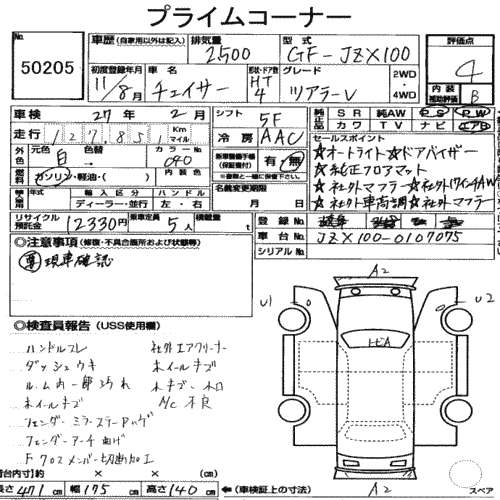 プライムコーナー
No.
50205
車歴 (自家用以外は記入)
排気量
2500
型式
GF-JZX100
評価点
4
初度登録年月
11/8月
車名
チェイサー
形状・ドア数
HT
4
グレード
ツアラーV
2WD
4WD
内装
補助評価
B
車検
27年 2月
シフト
5F
純正品
SR 純AW PS PW
カワ TV ナビ エアB
走行
127,851
Km
マイル
冷房
AAC
セールスポイント
☆オートライト☆ドアバイザー
☆純正フロアマット
☆社外マフラー☆社外17インチAW
☆社外車高調☆社外マフラー
外色
元色
白
色替
カラーNo.
040
燃料
ガソリン・軽油・( )
内装色
新車整備手帳
(保証書付)
有・無
※書類と一緒に保管して下さい。
名義変更期限
月 日
年式
輸入区分
ディーラー・並行
ハンドル
左・右
リサイクル預託金
12330円
乗車定員
5人
積載量
t
登録No.
車台No.
JZX100-0107075
シリアルNo.
◎注意事項 (修復・不具合箇所および状態等)
要 現車確認
◎検査員報告 (USS使用欄)
ハンドルスレ 社外エアクリーナー
ダッシュウキ ホイールキズ
ルーム内一部汚れ
ホイールキズ A/C不良
フェンダーミラーステーハゲ
フェンダーアーチ曲げ
Fクロスメンバー切断加工
A2
U1
U2
トビA
A2
スペア
荷台内寸(約) × × (cm)
長さ 471cm 幅 175cm 高さ 140cm (車検証上の寸法)